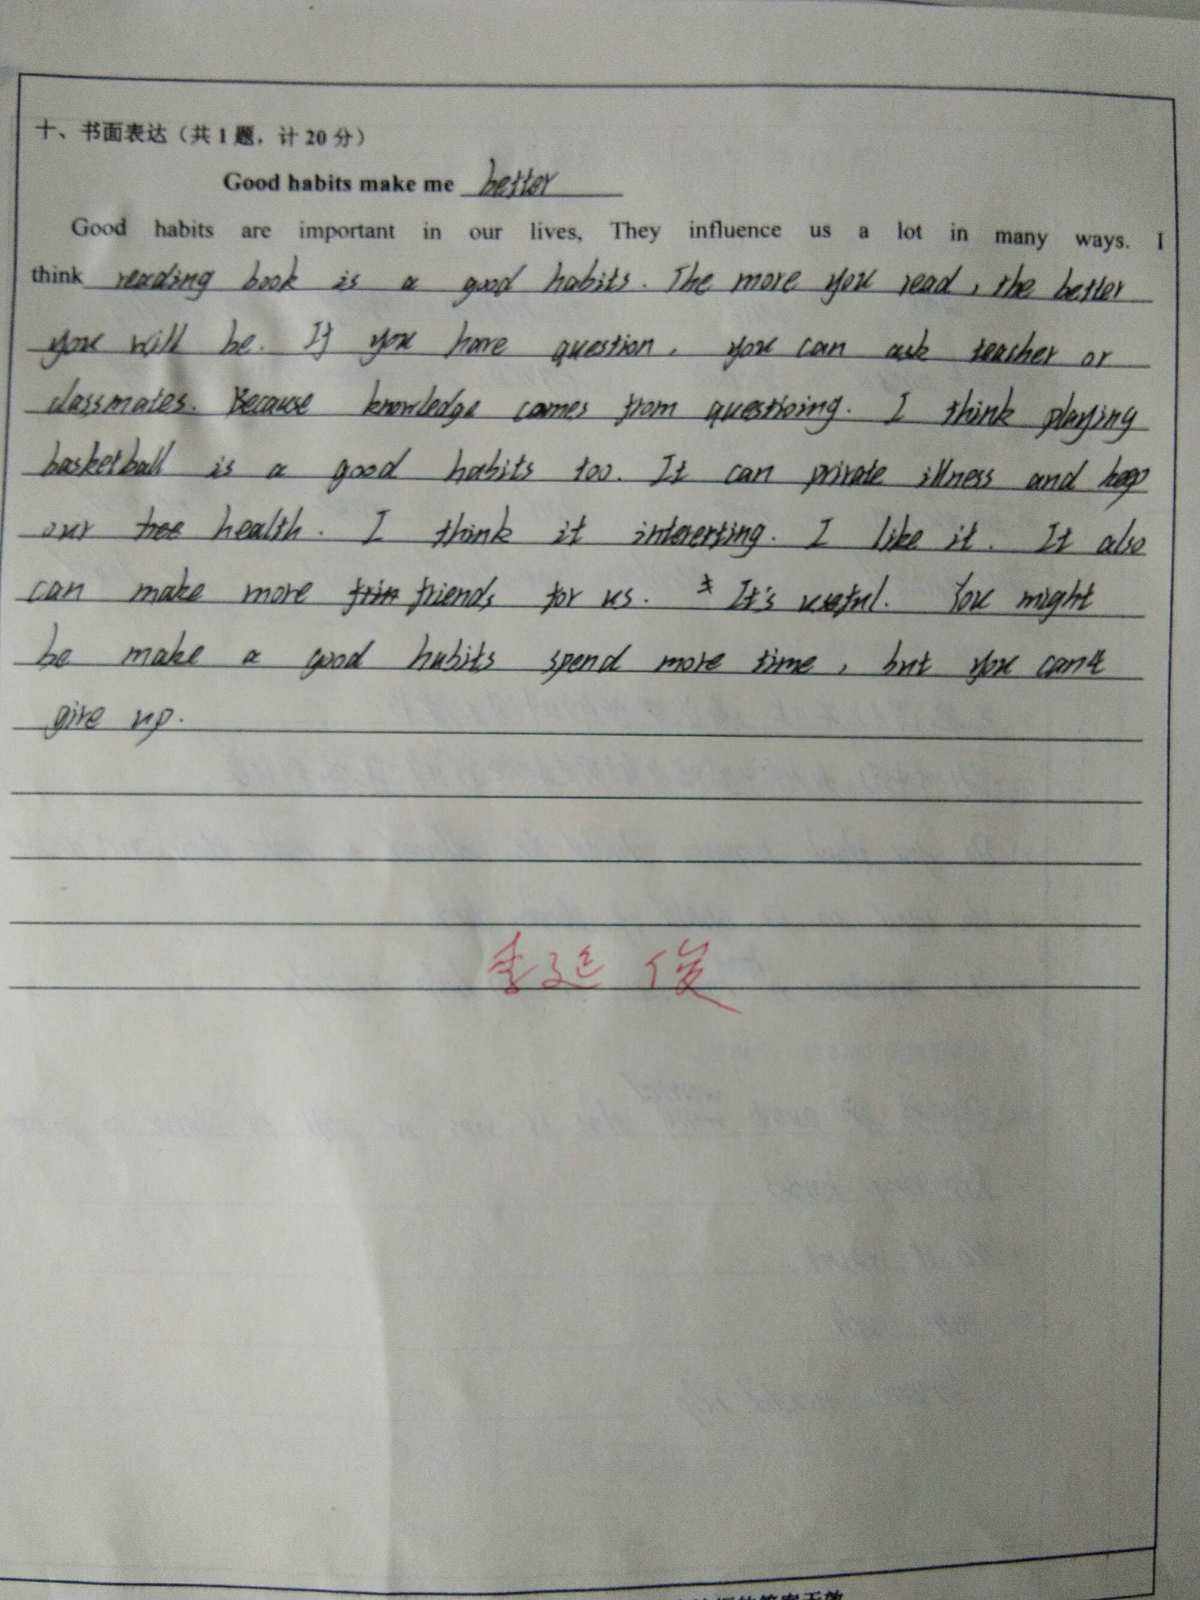 十、书面表达（共 1 题，计 20 分）
Good habits make me better
Good habits are important in our lives, They influence us a lot in many ways. I
think reading book is a good habits. The more you read, the better
you will be. If you have question, you can ask teacher or
classmates. Because knowledge comes from questioing. I think playing
basketball is a good habits too. It can private illness and
our health. I think it intererting. I like it. It also
can make more friends for us. It's useful. You might
be make a good habits spend more time, but you can't
give up.
李延俊